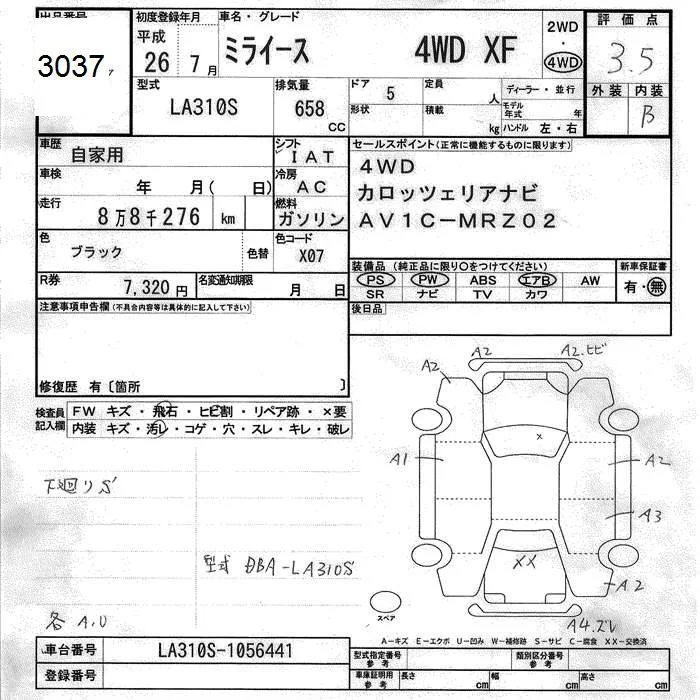 出品番号 初度登録年月 車名・グレード 評価点
3037 平成 26 7月 ミライース 4WD XF 2WD・4WD 3.5
型式 排気量 ドア 5 定員 人 ディーラー・並行 外装 内装
LA310S 658 CC 形状 積載 kg モデル年式 年 B
ハンドル 左・右
車歴 自家用 シフト IAT セールスポイント(正常に機能するものに限ります)
車検 年 月( 日) 冷房 AC 4WD
走行 8万8千276 km 燃料 ガソリン カロッツェリアナビ
AV1C-MRZ02
色 ブラック 色替 色コード X07
装備品 (純正品に限り○をつけてください) 新車保証書
R券 7,320円 名変通知期限 月 日 PS PW ABS エアB AW 有・無
SR ナビ TV カワ
注意事項申告欄(不具合内容等は具体的に記入して下さい) 後日品
修復歴 有〔箇所 〕
検査員記入欄 FW キズ・飛石・ヒビ割・リペア跡・×要
内装 キズ・汚レ・コゲ・穴・スレ・キレ・破レ
A2 A2 A2.ヒビ
×
A1 A2
A3
XX
A2
A4.ズレ
下廻りS
型式 DBA-LA310S
各A,U
スペア
A-キズ E-エクボ U-凹み W-補修跡 S-サビ C-腐食 XX-交換済
車台番号 LA310S-1056441 型式指定番号 参考 類別区分番号 参考
登録番号 車庫証明用 参考 長さ cm 幅 cm 高さ cm